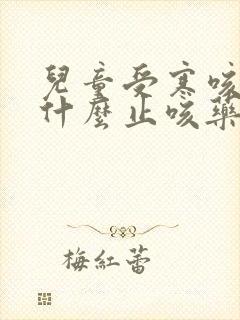 兒童受寒咳
什麼止咳藥
梅紅蕾